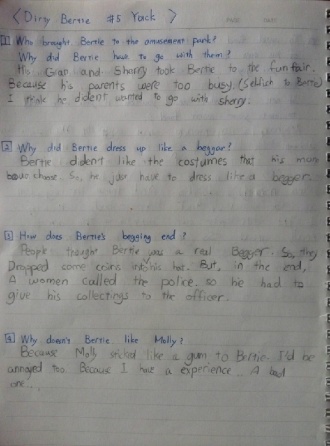 < Dirty Bertie #5 Yack >
1 Who brought Bertie to the amusement park?
Why did Bertie have to go with them?
His Gran and Sherry took Bertie to the funfair.
Because his parents were too busy. (Selfish to Bertie)
I think he dident wanted to go with sherry.
2 Why did Bertie dress up like a beggar?
Bertie didn't like the costumes that his mum
choose. So, he just have to dress like a begger.
3 How does Bertie's begging end?
People thought Bertie was a real Begger. So, they
Dropped some coins into his hat. But, in the end,
A women called the police. so he had to
give his collectings to the officer.
4 Why doesn't Bertie like Molly?
Because Molly sticked like a gum to Bertie. I'd be
annoyed too. Because I have a experience.. A bad
one...